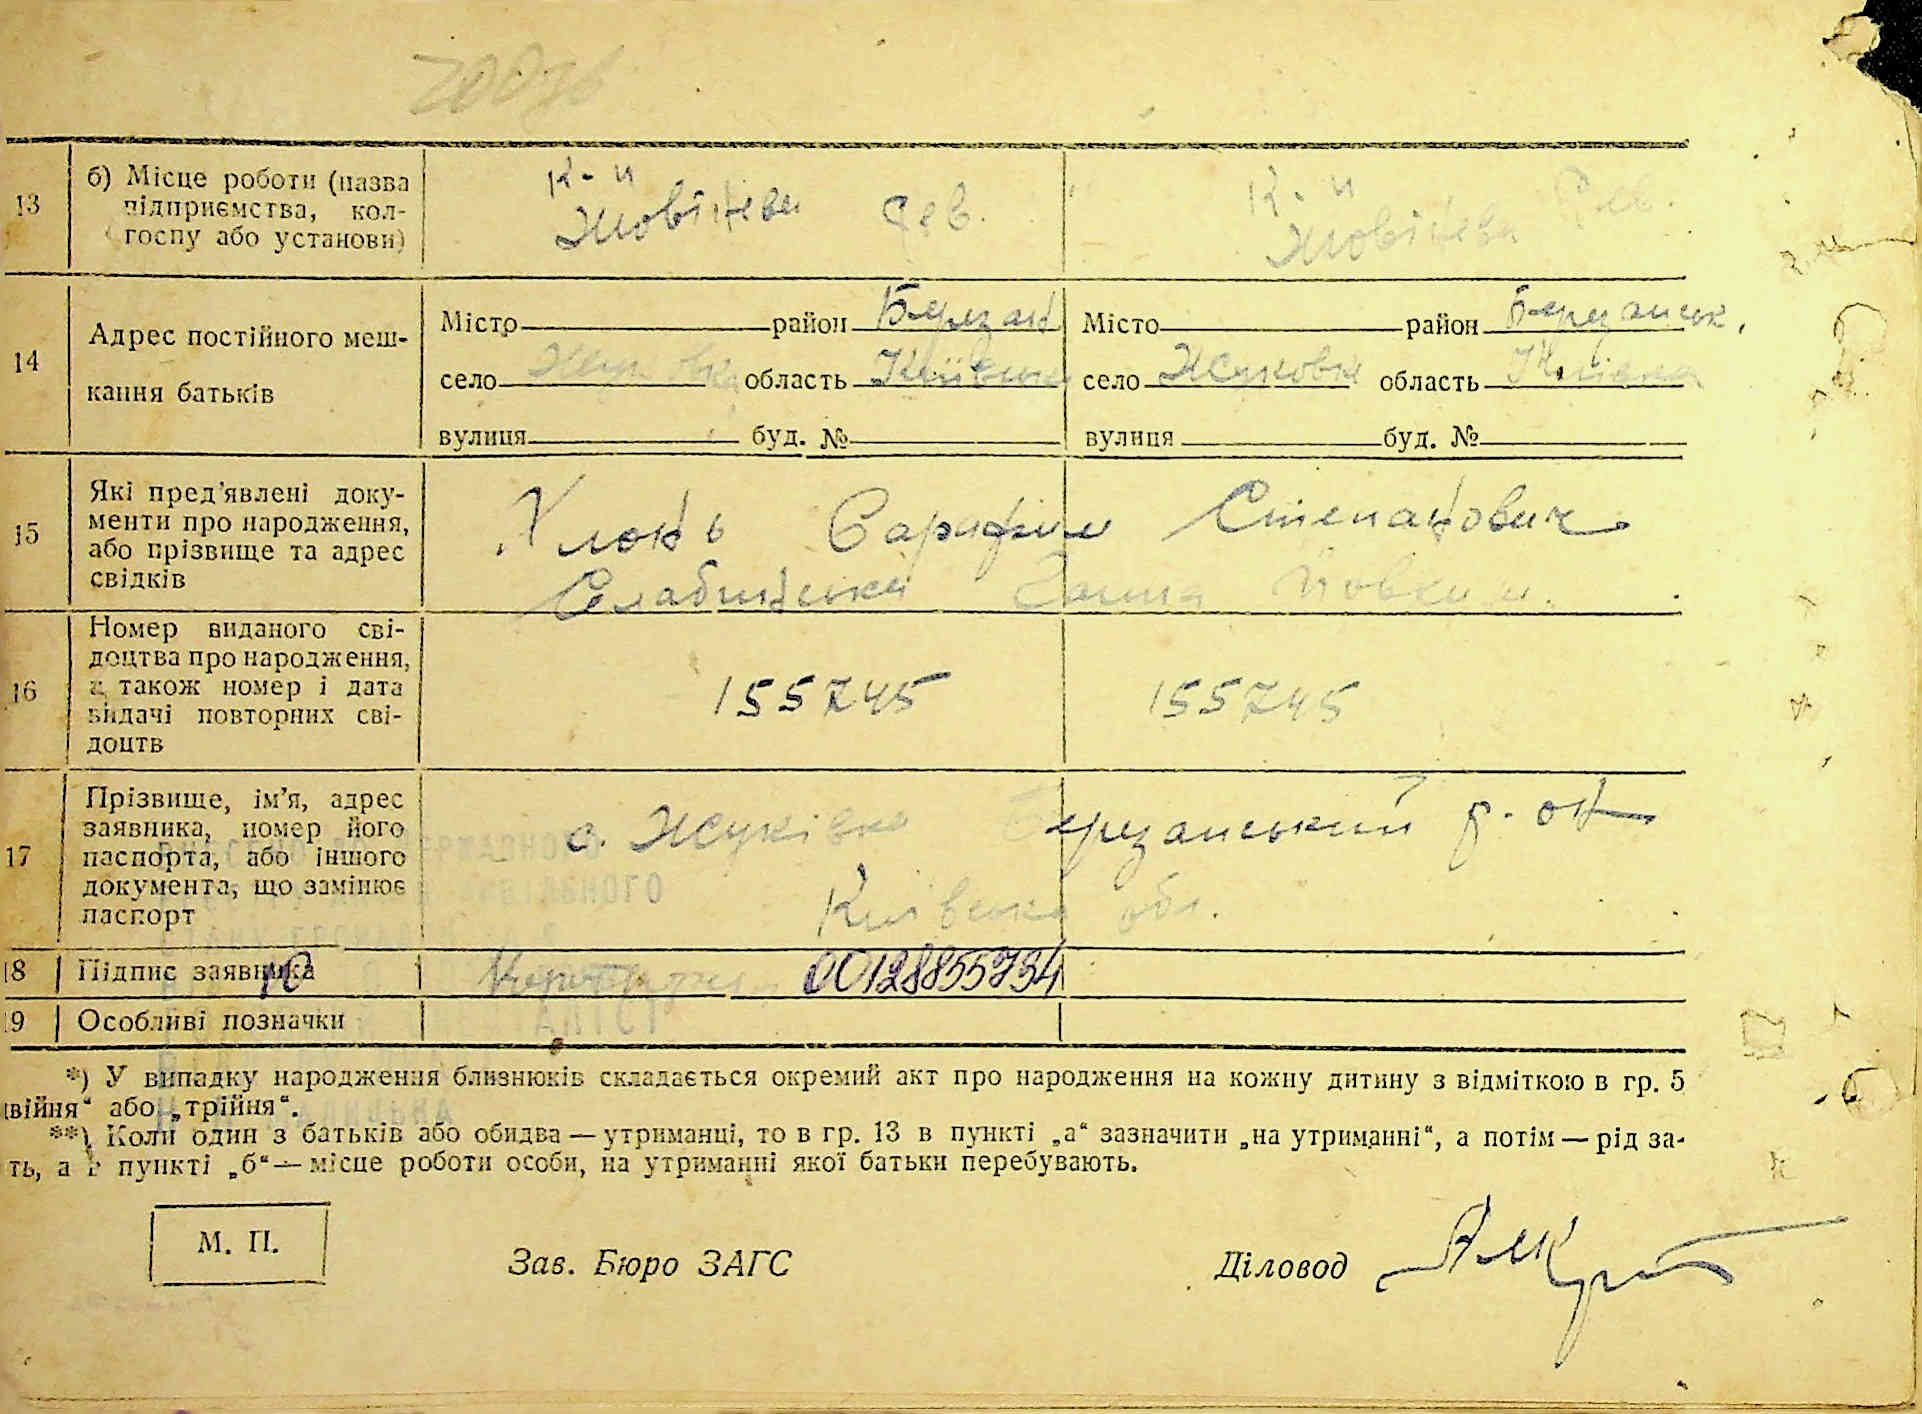 13 б) Місце роботи (назва підприємства, колгоспу або установи)
К-п Жовтнева Рев.
К-п Жовтнева Рев.
14 Адрес постійного мешкання батьків
Місто район Березан Місто район Березанськ.
село Жуковка область Київськ село Жуковк область Київська
вулиця буд. № вулиця буд. №
15 Які пред'явлені документи про народження, або прізвище та адрес свідків
Степанович
16 Номер виданого свідоцтва про народження, а також номер і дата видачі повторних свідоцтв
155745 155745
17 Прізвище, ім'я, адрес заявника, номер його паспорта, або іншого документа, що замінює паспорт
с. Жуківка Березанський р-он
Київська обл.
18 Підпис заявника 00128855754
19 Особливі позначки
*) У випадку народження близнюків складається окремий акт про народження на кожну дитину з відміткою в гр. 5
війня" або „трійня".
**) Коли один з батьків або обидва — утриманці, то в гр. 13 в пункті „а" зазначити „на утриманні", а потім — рід за-
ть, а в пункті „б" — місце роботи особи, на утриманні якої батьки перебувають.
М. П.
Зав. Бюро ЗАГС Діловод